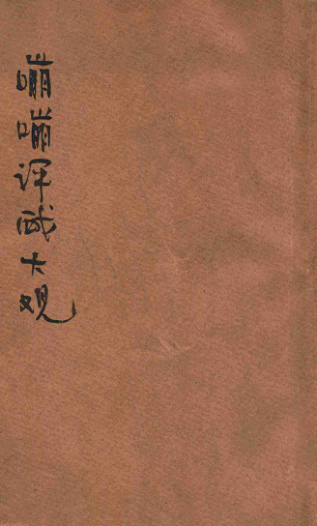 嘣嘣评戏大观